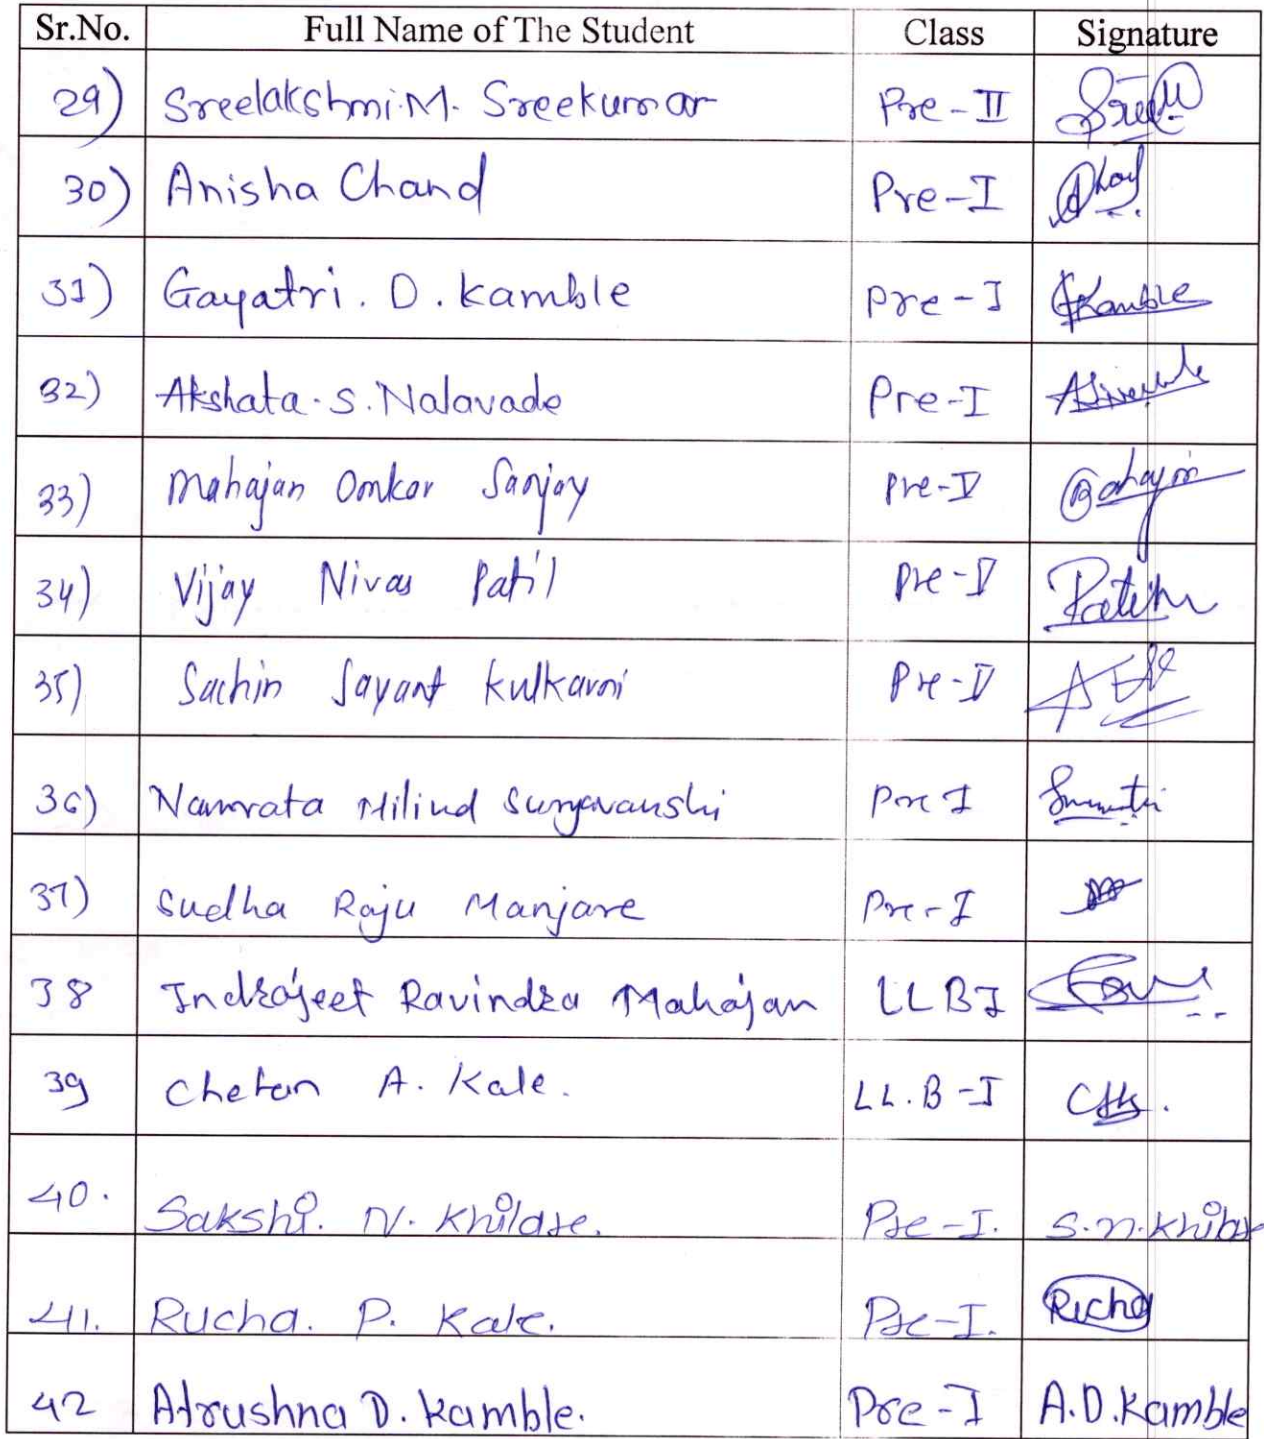 Sr.No. Full Name of The Student Class Signature
29) Sreelakshmi.M. Sreekumar Pre-II
30) Anisha Chand Pre-I
31) Gayatri. D. Kamble Pre-I Kamble
32) Akshata.S.Nalavade Pre-I
33) Mahajan Omkar Sanjay Pre-V
34) Vijay Nivas Patil Pre-V
35) Sachin Jayant Kulkarni Pre-V
36) Namrata Milind Suryavanshi Pre I
37) Sudha Raju Manjare Pre-I
38 Indrajeet Ravindra Mahajan LLBI
39 Chetan A. Kale. LL.B-I
40. Sakshi. N. Khilare. Pre-I. S.N.Khilare
41. Rucha. P. Kale. Pre-I. Rucha
42 Atrushna D. Kamble. Pre-I A.D.Kamble